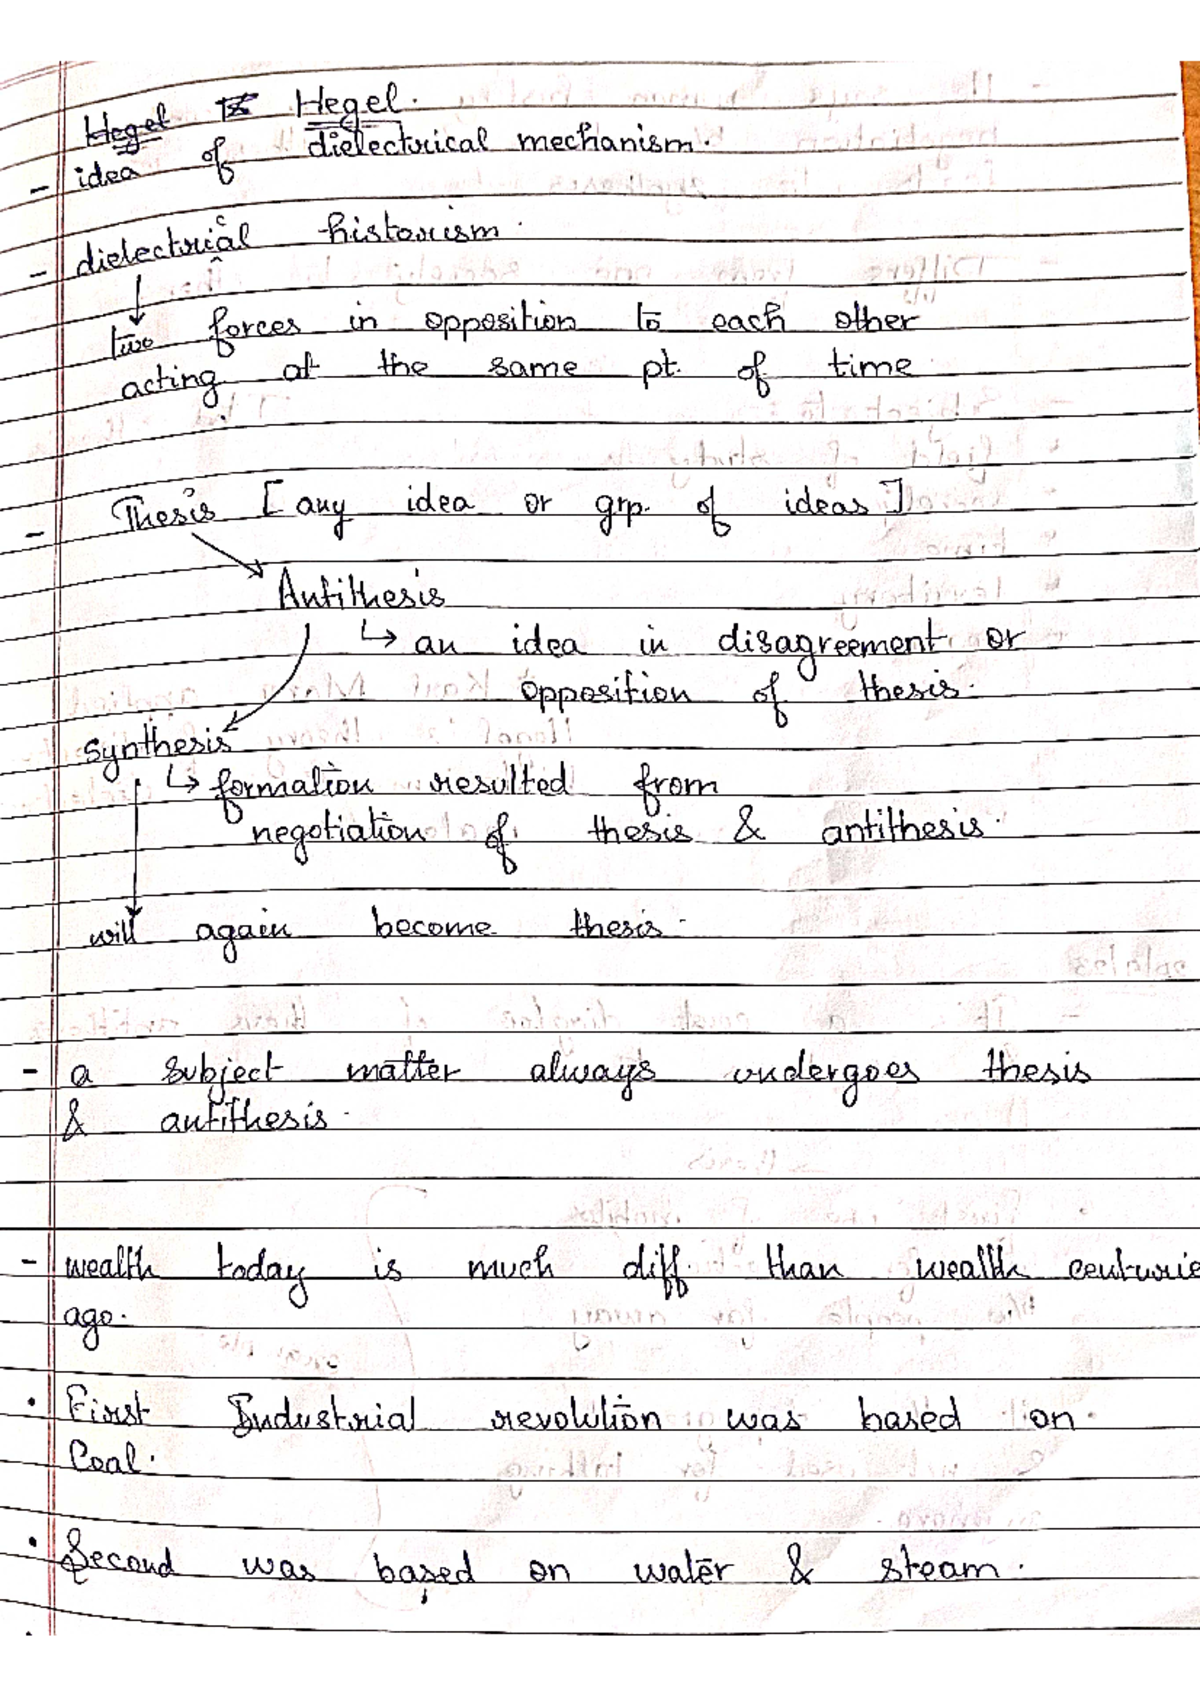 Hegel Hegel.
- idea of dielectrical mechanism.
- dielectrical c historism.
two forces in opposition to each other
acting at the same pt. of time
- Thesis [any idea or grp. of ideas]
Antithesis
↳ an idea in disagreement or
opposition of thesis.
Synthesis
↳ formation resulted from
negotiation of thesis & antithesis.
will again become thesis.
- a subject matter always undergoes thesis
& antithesis.
- wealth today is much diff. than wealth centurie
ago.
• First Industrial revolution was based on
Coal.
• Second was based on water & steam.